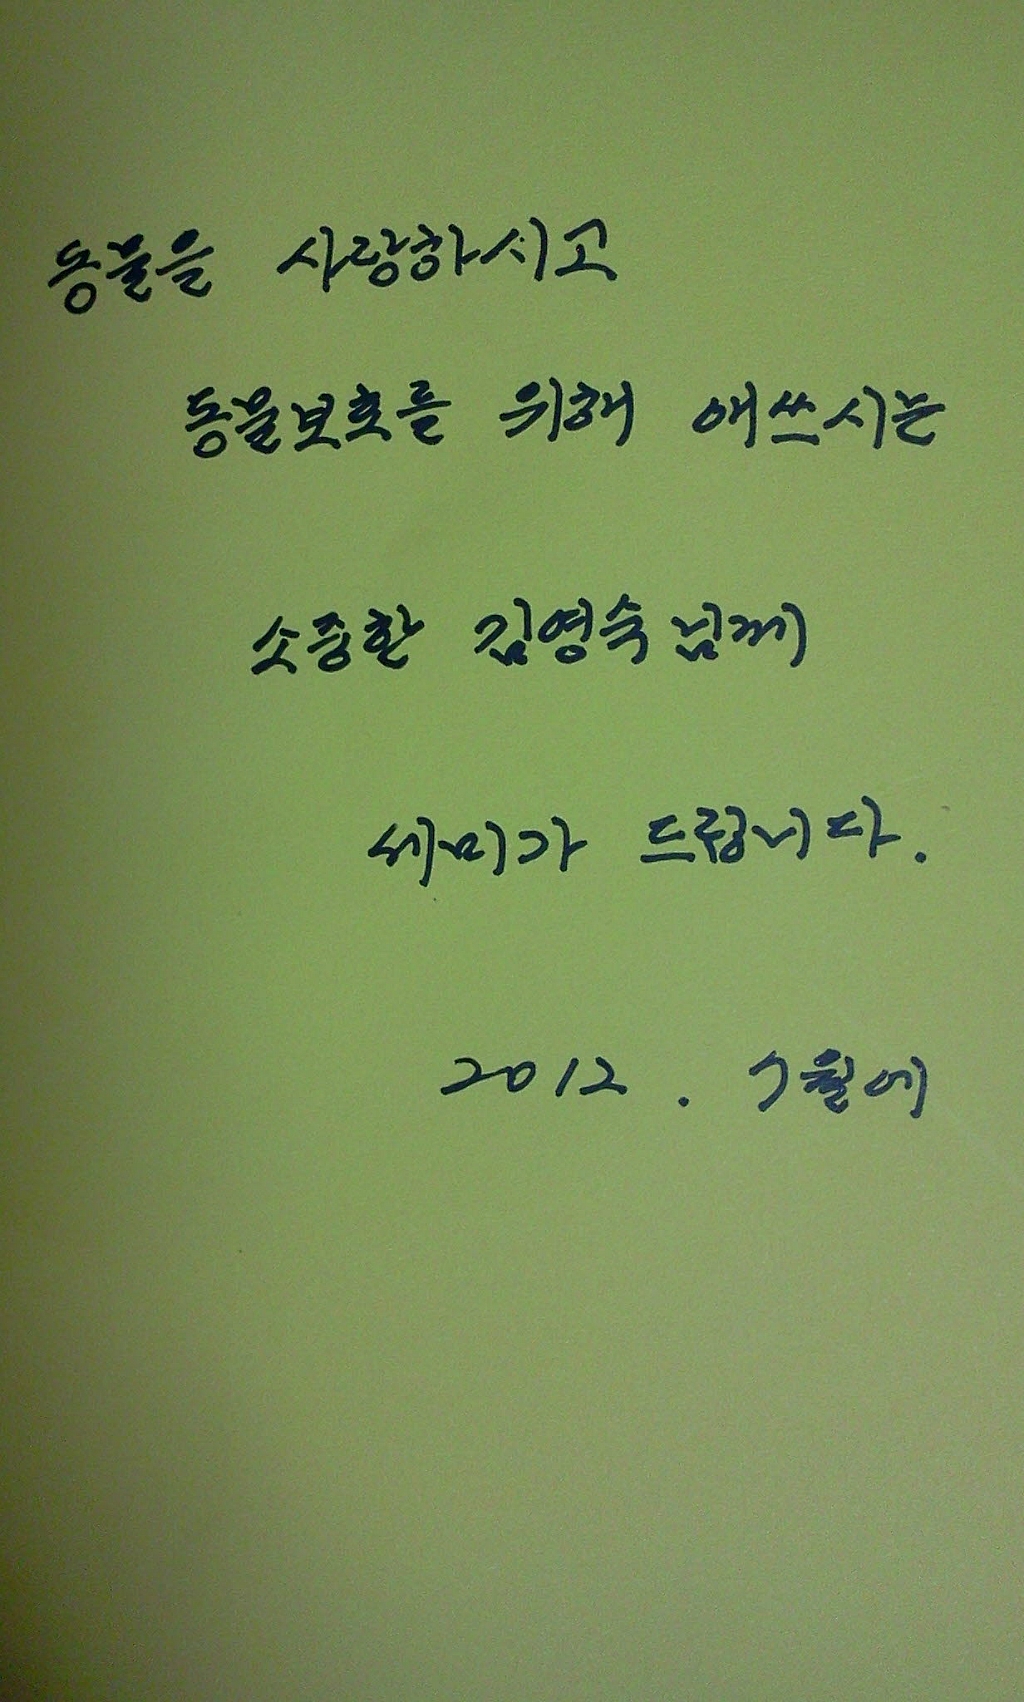 동물을 사랑하시고
동물보호를 위해 애쓰시는
소중한 김영숙님께
세미가 드립니다.
2012. 7월에